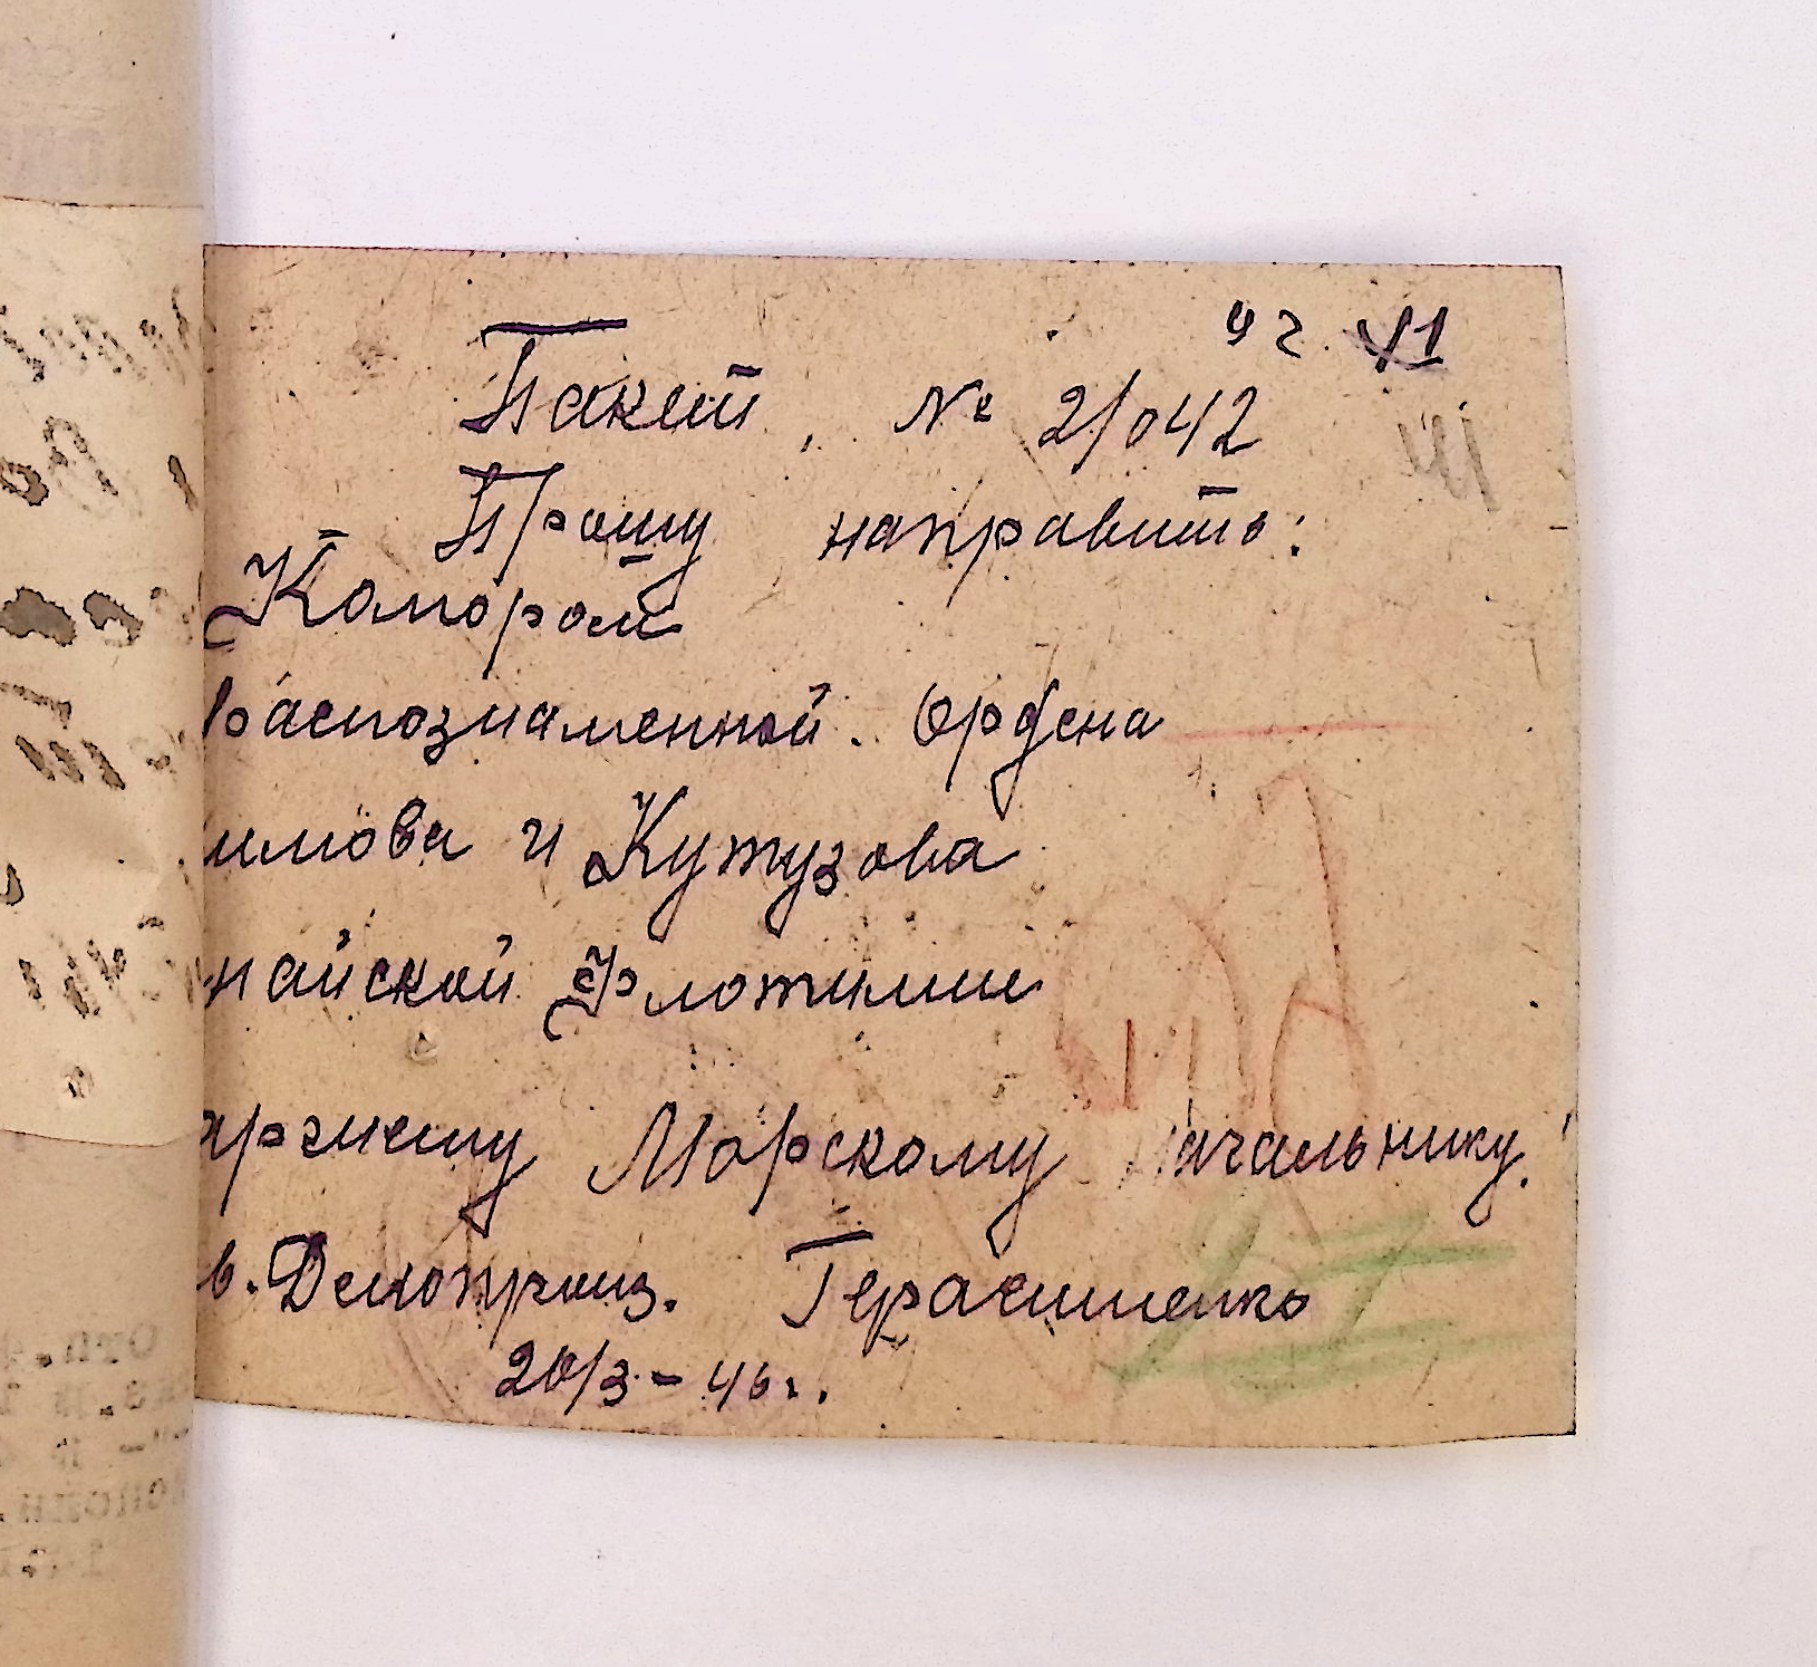 92. 11
Пакет, № 2/042
Прошу направить:
Которой
раснознаменной. Ордена
имова и Кутузова
найской Флотилии
аршему Морскому Начальнику.
в. Делопроиз. Герасименко
20/3 - 46г.